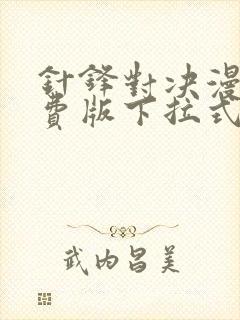 針鋒對決漫
費版下拉式
武内昌美